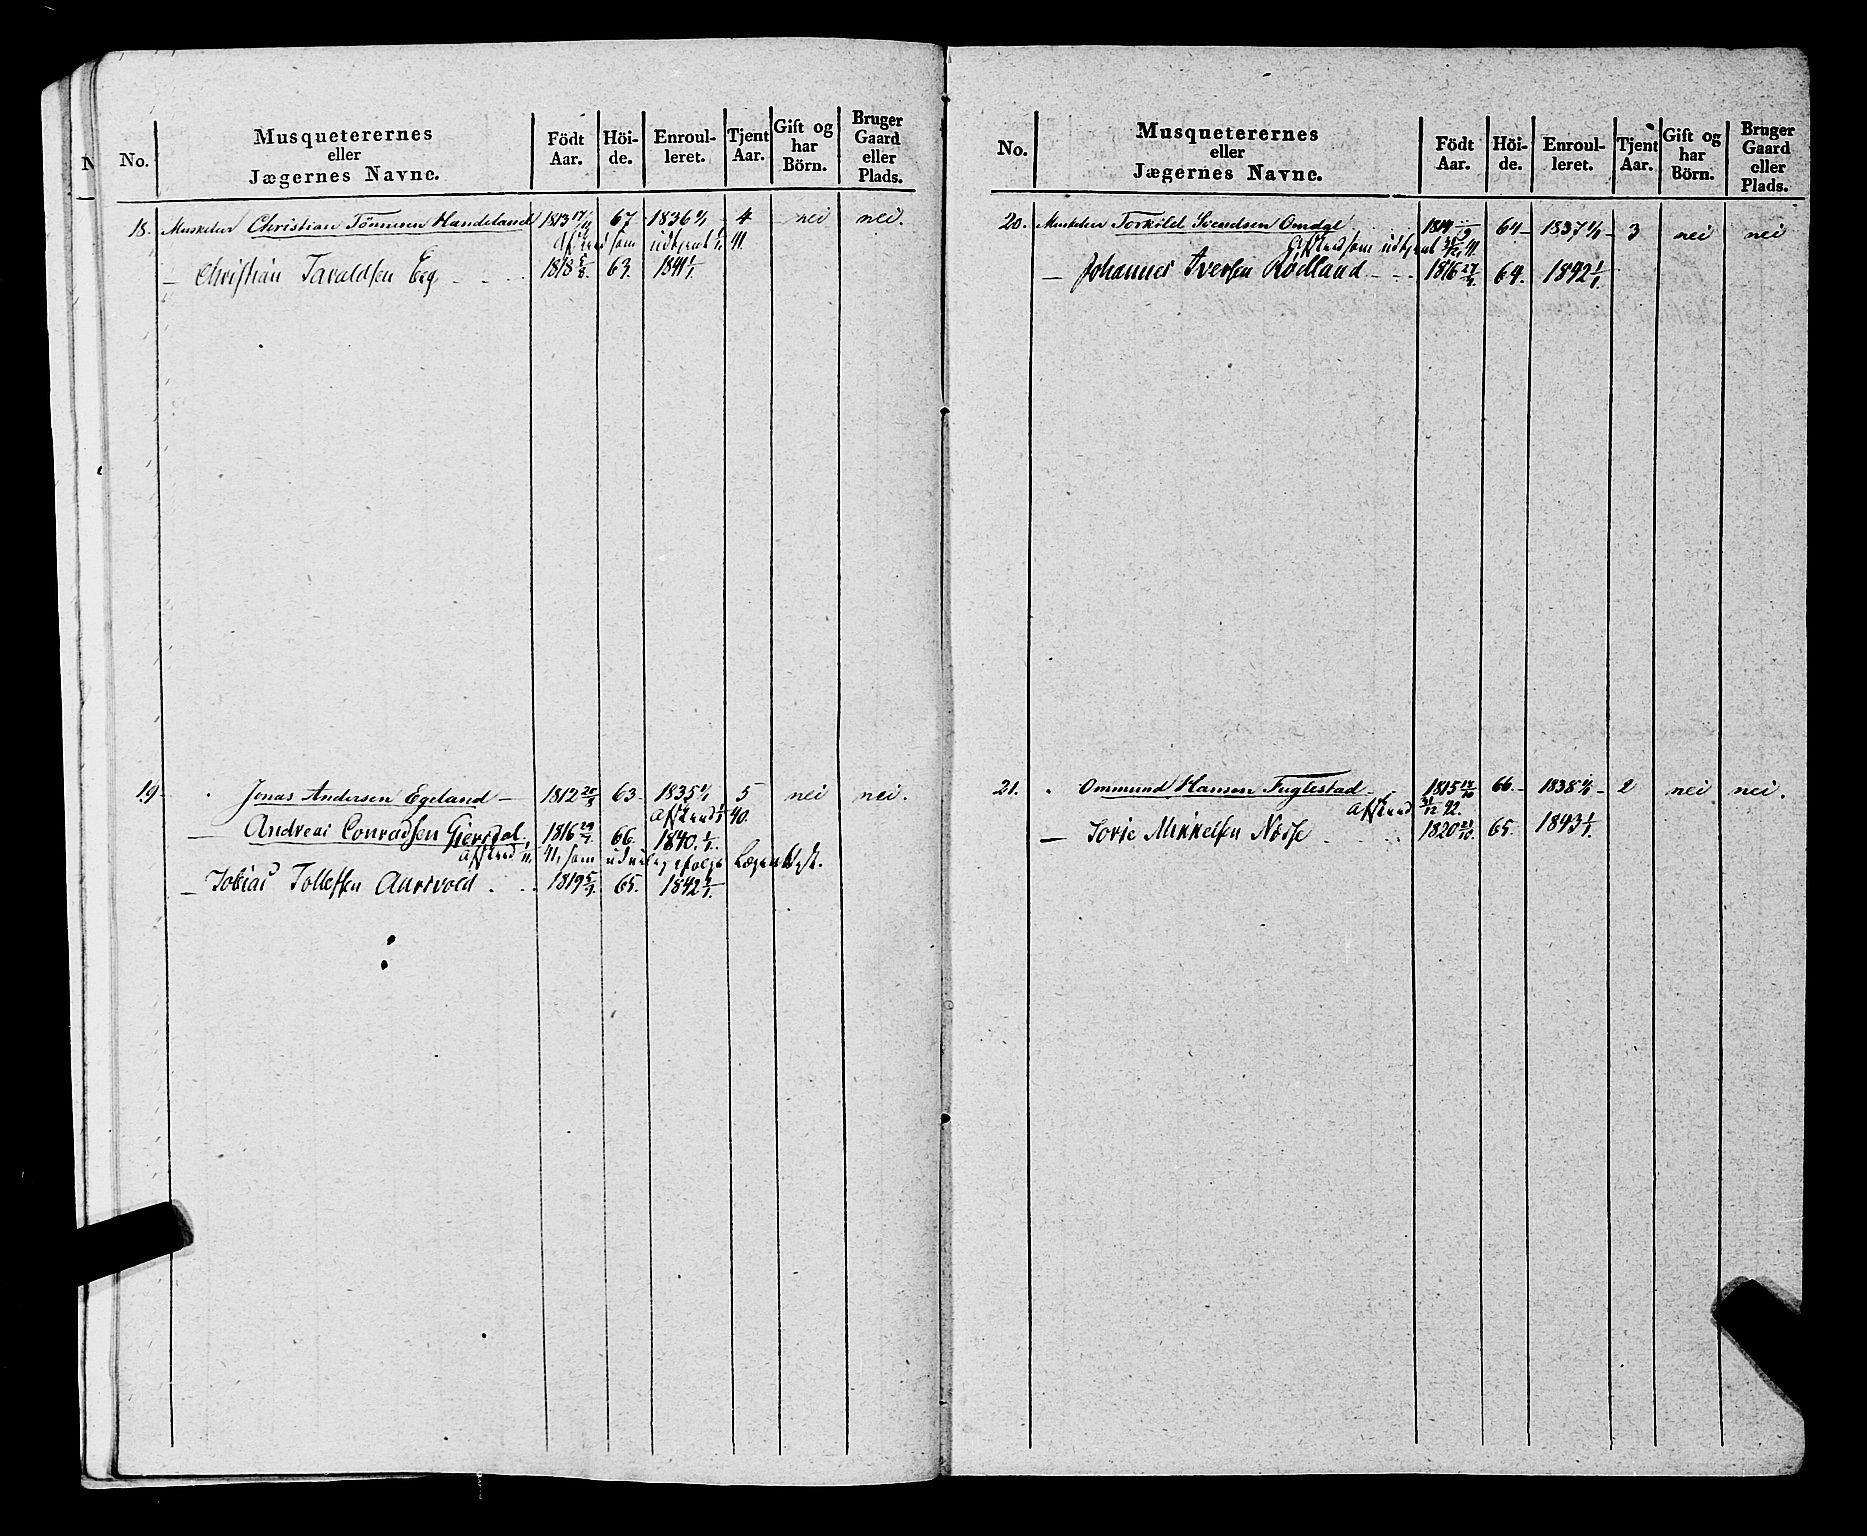 No. Musqueterernes eller Jægernes Navne. Födt Aar. Höi-de. Enroul-leret. Tjent Aar. Gift og har Börn. Bruger Gaard eller Plads.
18. Musketeer Christian Tönnesen Handeland 1813 17/11 67 1836 1/1 4 nei nei.
Afskeed som udtjent 1/1 41.
— Christian Tavaldsen Eeg 1818 5/8 63. 1841 1/1
19 Jonas Andersen Egeland — 1812 20/3 63 1835 1/1 5 nei nei.
Afskeed 1/1 40.
— Andreas Conradsen Giersdal, 1816 29/7 66. 1840. 1/1.
Afskeed 41, som ifølge
— Tobias Tollefsen Aarsvold 1819 5/7 65. 1842 1/1.
No. Musqueterernes eller Jægernes Navne. Födt Aar. Höi-de. Enroul-leret. Tjent Aar. Gift og har Börn. Bruger Gaard eller Plads.
20. Musketeer Torkild Svendsen Omdal 1814 64 1837 1/1 3 nei nei
Afskeed som udtjent 31/12 41.
— Johannes Iversen Rødland — 1816 27/9. 64. 1842 1/1.
21. Ommund Hansen Fuglestad 1815 66. 1838 1/1 2 nei nei.
Afskeed 31/12 42.
— Sovie Mikkelsen Nesse 1820 21/10. 65. 1843 1/1.